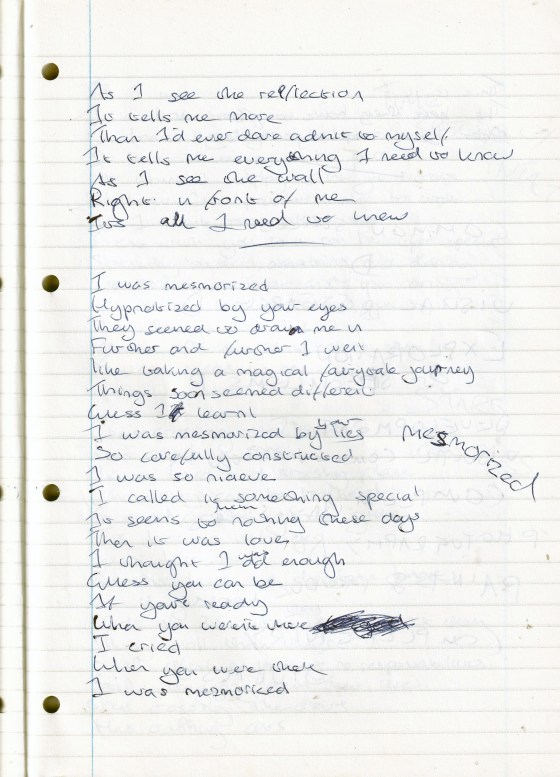 As I see the reflection
It tells me more
Than I'd ever dare admit to myself
It tells me everything I need to know
As I see the wall
Right in front of me
Its all I need to know
I was mesmorized
Hypnotized by your eyes
They seemed to draw me in
Further and further I went
like taking a magical fairytale journey
Things soon seemed different
Guess I learnt
I was mesmorized by your lies
Mesmorized
So carefully constructed
I was so niaeve
I called it something special
It seems to nothing these days
Then it was love
I thought I enough
Guess you can be
If you're ready
When you weren't there
I cried
When you were there
I was mezmorized